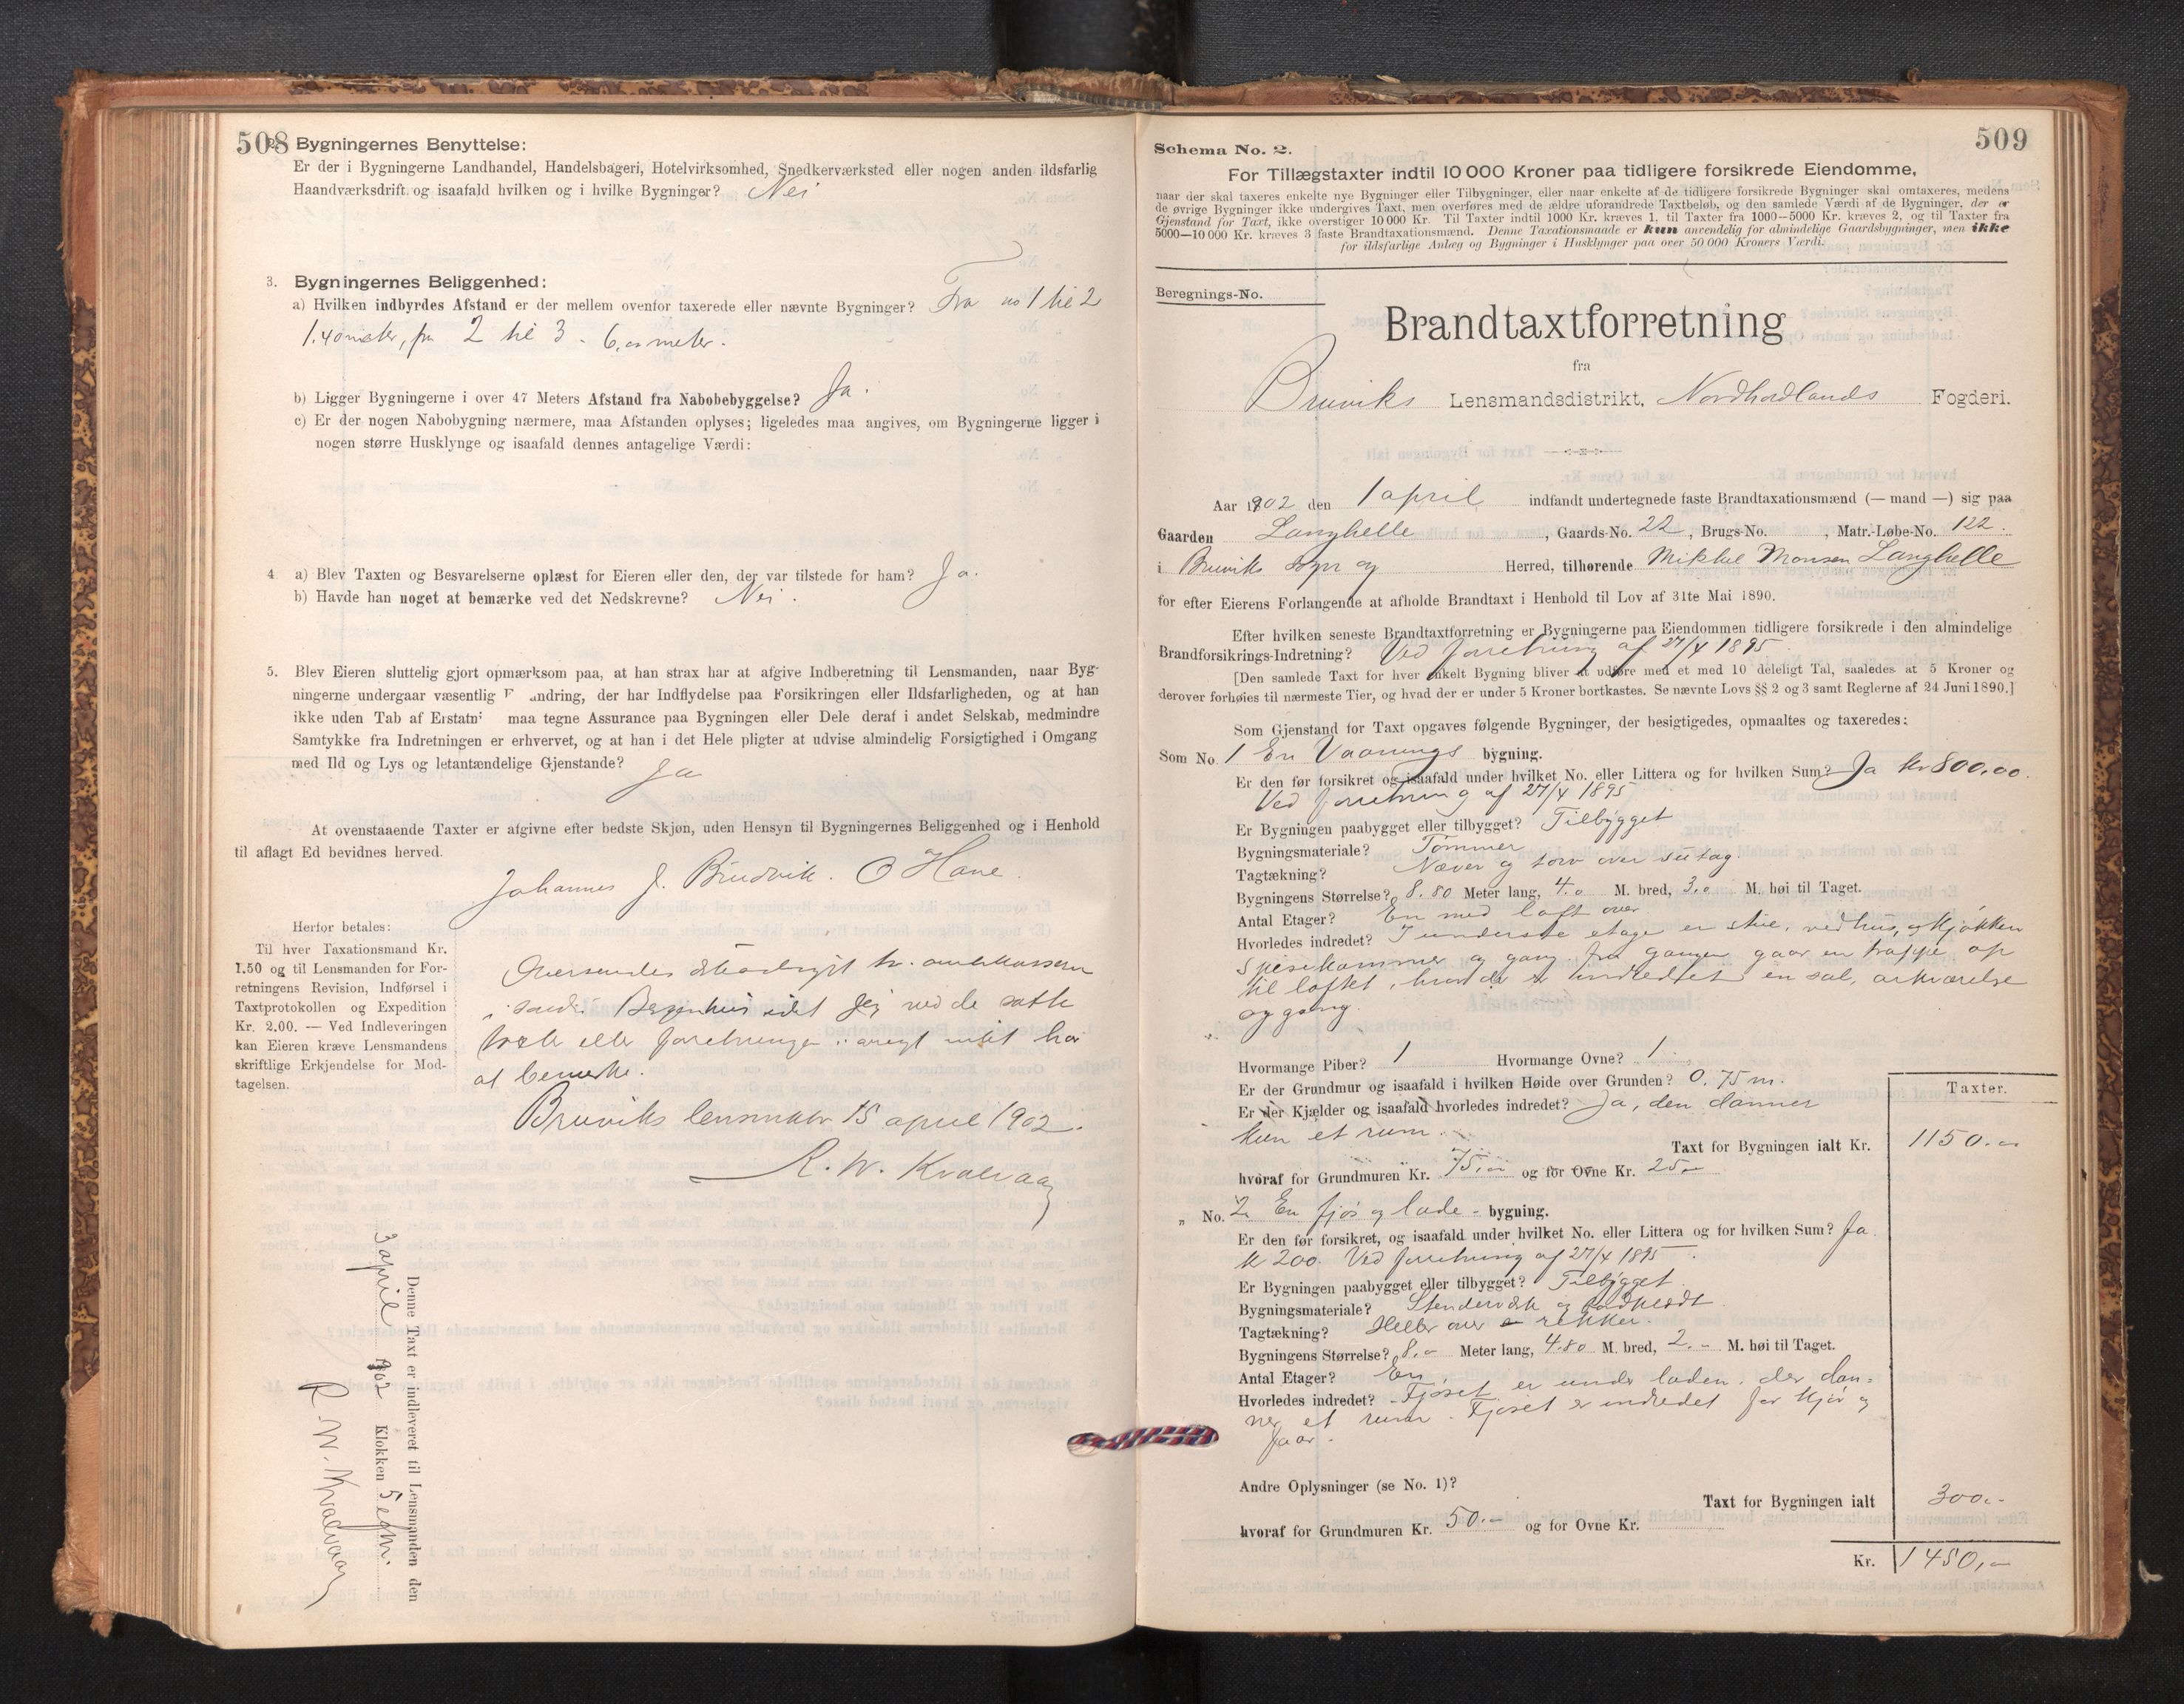 508
2. Bygningernes Benyttelse:
Er der i Bygningerne Landhandel, Handelsbageri, Hotelvirksomhed, Snedkerværksted eller nogen anden ildsfarlig
Haandværksdrift og isaafald hvilken og i hvilke Bygninger? Nei
3. Bygningernes Beliggenhed:
a) Hvilken indbyrdes Afstand er der mellem ovenfor taxerede eller nævnte Bygninger? Fra no 1 til 2
1.40 meter, fra 2 til 3. 6,00 meter.
b) Ligger Bygningerne i over 47 Meters Afstand fra Nabobebyggelse? Ja.
c) Er der nogen Nabobygning nærmere, maa Afstanden oplyses; ligeledes maa angives, om Bygningerne ligger i
nogen større Husklynge og isaafald dennes antagelige Værdi:
4. a) Blev Taxten og Besvarelserne oplæst for Eieren eller den, der var tilstede for ham? Ja.
b) Havde han noget at bemærke ved det Nedskrevne? Nei.
5. Blev Eieren sluttelig gjort opmærksom paa, at han strax har at afgive Indberetning til Lensmanden, naar Byg-
ningerne undergaar væsentlig F andring, der har Indflydelse paa Forsikringen eller Ildsfarligheden, og at han
ikke uden Tab af Erstatn maa tegne Assurance paa Bygningen eller Dele deraf i andet Selskab, medmindre
Samtykke fra Indretningen er erhvervet, og at han i det Hele pligter at udvise almindelig Forsigtighed i Omgang
med Ild og Lys og letantændelige Gjenstande? Ja
At ovenstaaende Taxter er afgivne efter bedste Skjøn, uden Hensyn til Bygningernes Beliggenhed og i Henhold
til aflagt Ed bevidnes herved.
Johannes J. Brudvik. O Hane.
Herfor betales:
Til hver Taxationsmand Kr.
1.50 og til Lensmanden for For-
retningens Revision, Indførsel i
Taxtprotokollen og Expedition
Kr. 2.00. — Ved Indleveringen
kan Eieren kræve Lensmandens
skriftlige Erkjendelse for Mod-
tagelsen.
Oversendes
idet jeg ved de satte
taxter eller forretningen intet har
at bemerke.
Bruviks lensmktr 15 april 1902.
R. W. Kvalvaag
Denne Taxt er indleveret til Lensmanden den
3 april 1902 Klokken 5 efm.
R. W. Kvalvaag
509
Schema No. 2.
For Tillægstaxter indtil 10 000 Kroner paa tidligere forsikrede Eiendomme,
naar der skal taxeres enkelte nye Bygninger eller Tilbygninger, eller naar enkelte af de tidligere forsikrede Bygninger skal omtaxeres, medens
de øvrige Bygninger ikke undergives Taxt, men overføres med de ældre uforandrede Taxtbeløb, og den samlede Værdi af de Bygninger, der er
Gjenstand for Taxt, ikke overstiger 10 000 Kr. Til Taxter indtil 1000 Kr. kræves 1, til Taxter fra 1000—5000 Kr. kræves 2, og til Taxter fra
5000—10 000 Kr. kræves 3 faste Brandtaxationsmænd. Denne Taxationsmaade er kun anvendelig for almindelige Gaardsbygninger, men ikke
for ildsfarlige Anlæg og Bygninger i Husklynger paa over 50 000 Kroners Værdi.
Beregnings-No.
Brandtaxtforretning
fra
Bruviks Lensmandsdistrikt, Nordhordlands Fogderi.
Aar 1902 den 1 april indfandt undertegnede faste Brandtaxationsmænd (— mand —) sig paa
Gaarden Langhelle, Gaards-No. 22, Brugs-No. , Matr.-Løbe-No. 122.
i Bruviks sogn og Herred, tilhørende Mikkel Monsen Langhelle
for efter Eierens Forlangende at afholde Brandtaxt i Henhold til Lov af 31te Mai 1890.
Efter hvilken seneste Brandtaxtforretning er Bygningerne paa Eiendommen tidligere forsikrede i den almindelige
Brandforsikrings-Indretning? Ved forretning af 27/4 1895
[Den samlede Taxt for hver enkelt Bygning bliver at udføre med et med 10 deleligt Tal, saaledes at 5 Kroner og
derover forhøies til nærmeste Tier, og hvad der er under 5 Kroner bortkastes. Se nævnte Lovs §§ 2 og 3 samt Reglerne af 24 Juni 1890.]
Som Gjenstand for Taxt opgaves følgende Bygninger, der besigtigedes, opmaaltes og taxeredes:
Som No. 1 En Vaanings bygning.
Er den før forsikret og isaafald under hvilket No. eller Littera og for hvilken Sum? Ja kr 800,00.
Ved forretning af 27/4 1895
Er Bygningen paabygget eller tilbygget? Tilbygget
Bygningsmateriale? Tømmer
Tagtækning? Næver og torv over sutag.
Bygningens Størrelse? 8.80 Meter lang, 4.0 M. bred, 3.0 M. høi til Taget.
Antal Etager? En med loft over
Hvorledes indredet? I underste etage er stue, vedhus, og kjøkken
spisekammer og gang. fra gangen gaar en trappe op
til loftet, hvor der er indredet en sal, arkværelse
og gang.
Hvormange Piber? 1 Hvormange Ovne? 1
Er der Grundmur og isaafald i hvilken Høide over Grunden? 0.75 m.
Er der Kjælder og isaafald hvorledes indredet? Ja, den danner
kun et rum.
Taxter.
Taxt for Bygningen ialt Kr. 1150.00
hvoraf for Grundmuren Kr. 75,00 og for Ovne Kr. 25,00
" No. 2 En fjøs og lade - bygning.
Er den før forsikret, og isaafald under hvilket No. eller Littera og for hvilken Sum? Ja
kr 200. Ved forretning af 27/4 1895.
Er Bygningen paabygget eller tilbygget? Tilbygget.
Bygningsmateriale? Stenderværk og bordklædt
Tagtækning? Heller over rekker.
Bygningens Størrelse? 8.0 Meter lang, 4.80 M. bred, 2.- M. høi til Taget.
Antal Etager? En.
Hvorledes indredet? Fjøset er under laden, der dan-
ner et rum. Fjøset er indredet for kjør og
faar.
Andre Oplysninger (se No. 1)?
Taxt for Bygningen ialt 300.-
hvoraf for Grundmuren Kr. 50.- og for Ovne Kr.
Kr. 1450,-